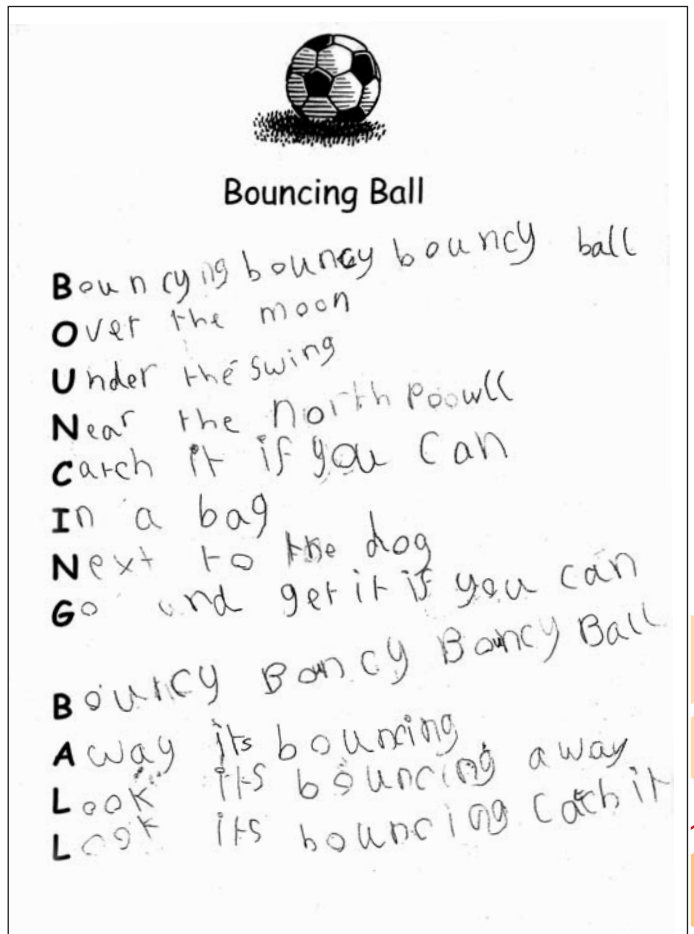 Bouncing Ball
Bouncying bouncy bouncy ball
Over the moon
Under the swing
Near the North Poowll
Catch it if you can
In a bag
Next to the dog
Go and get it if you can
Bouncy Boncy Boncy Ball
Away its bouncing
Look its bouncing away
Look its bouncing catch it